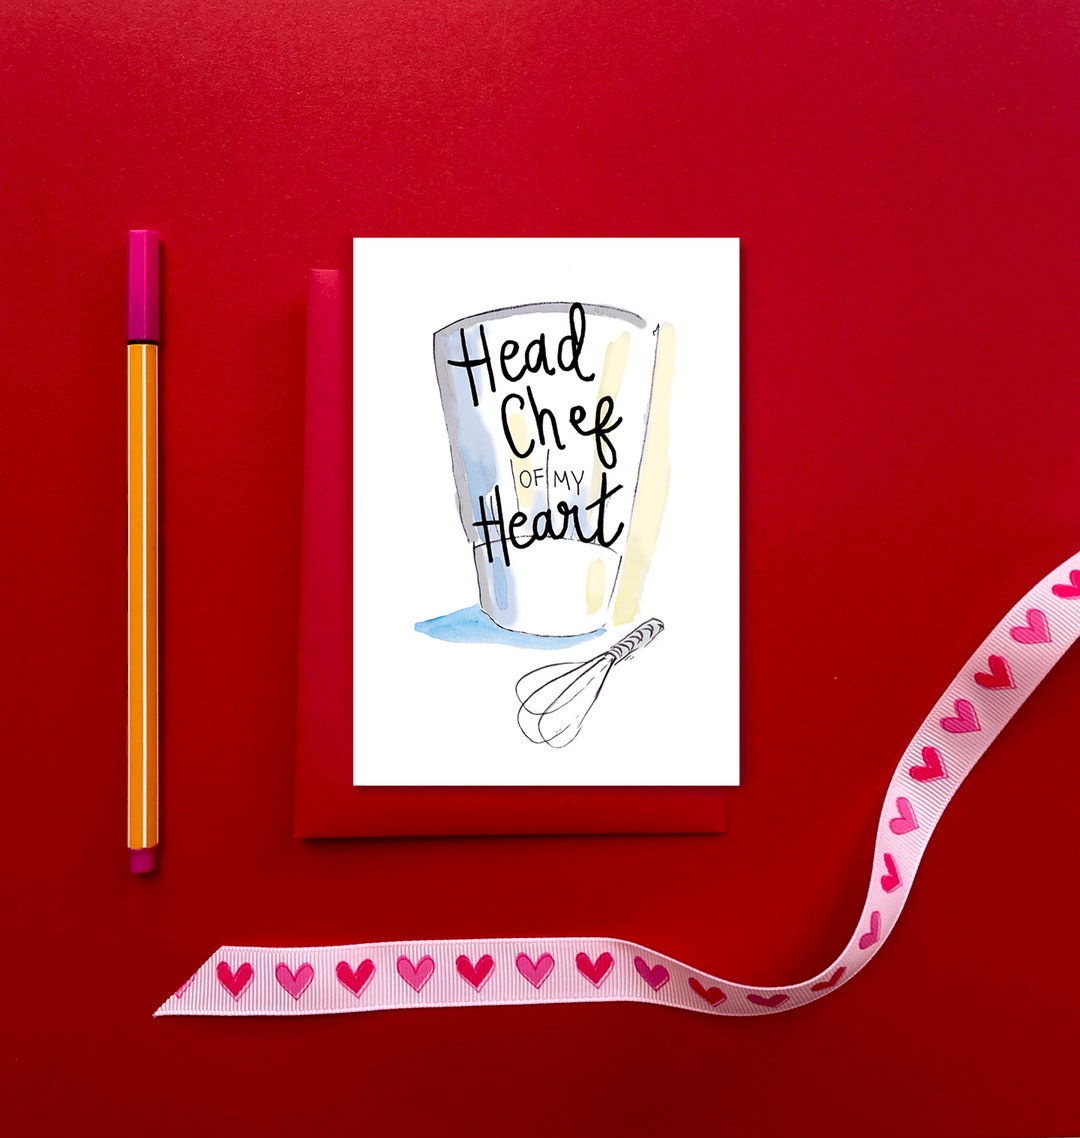 Head
Chef
OF MY
Heart